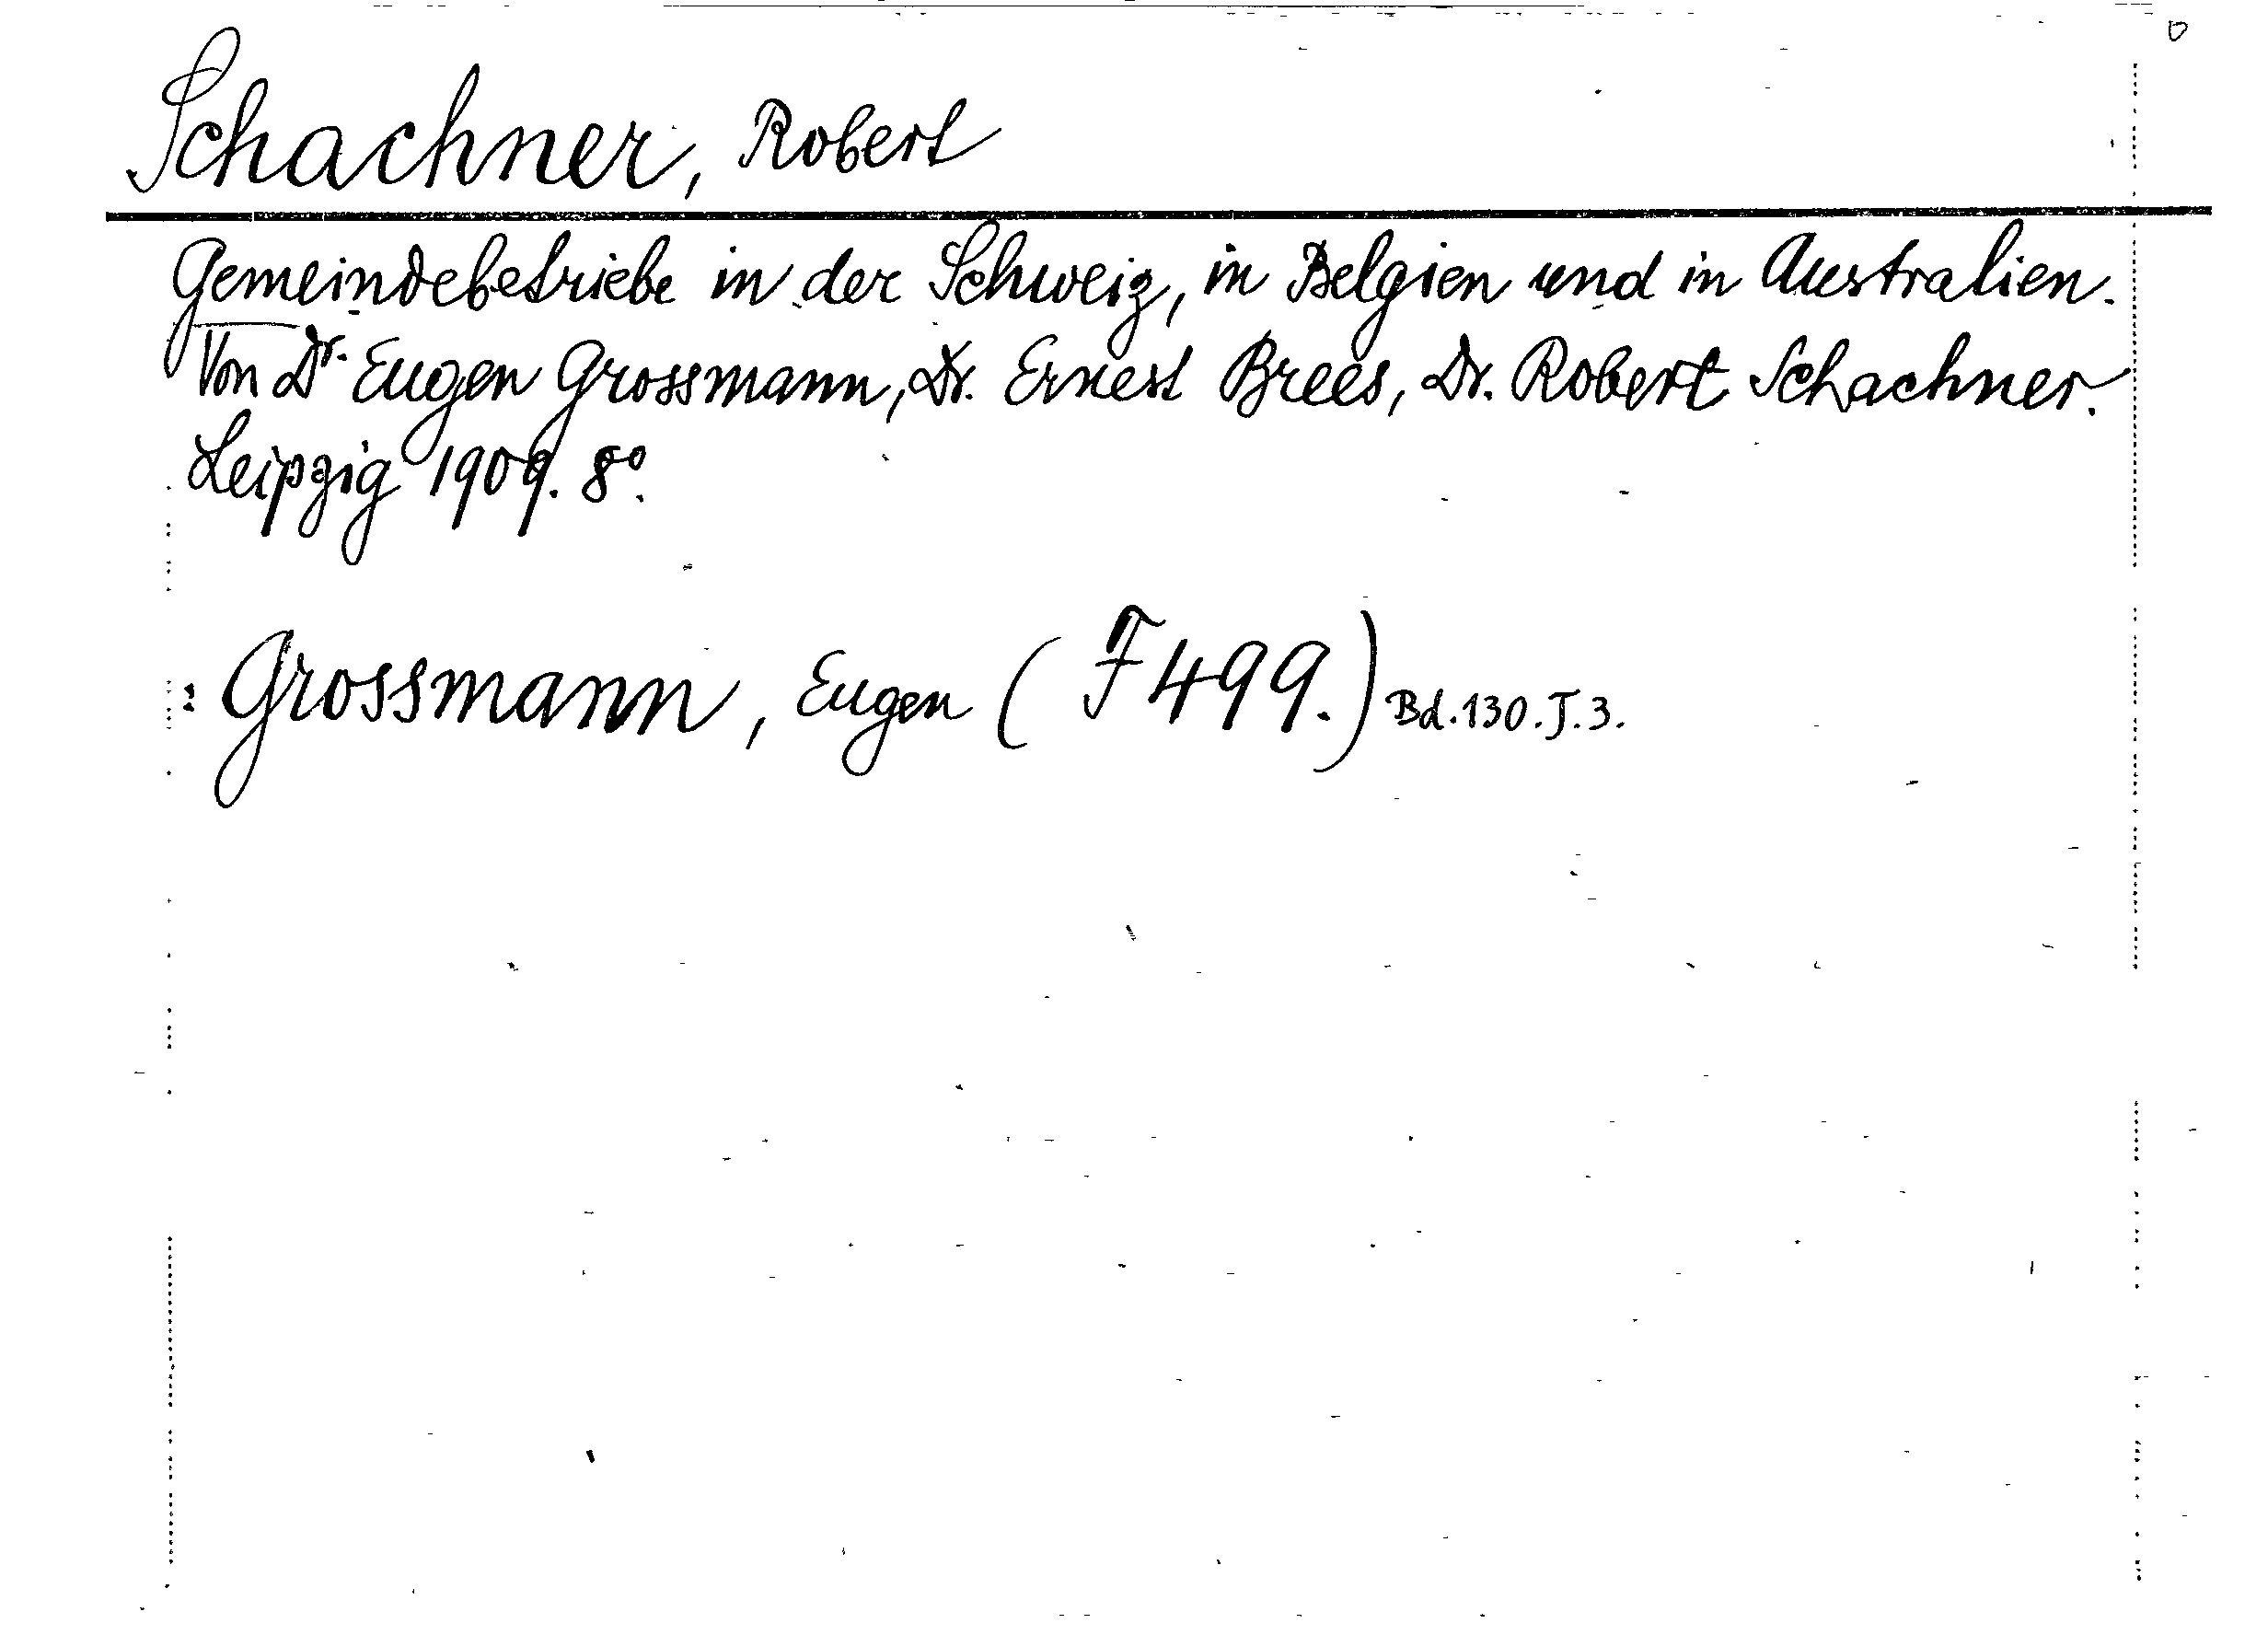 Schachner, Robert
Gemeindebetriebe in der Schweiz, in Belgien und in Australien.
Von Dr. Eugen Grossmann, Dr. Ernest Brees, Dr. Robert Schachner.
Leipzig 1909. 8°.
: Grossmann, Eugen (F 499.) Bd. 130. T. 3.